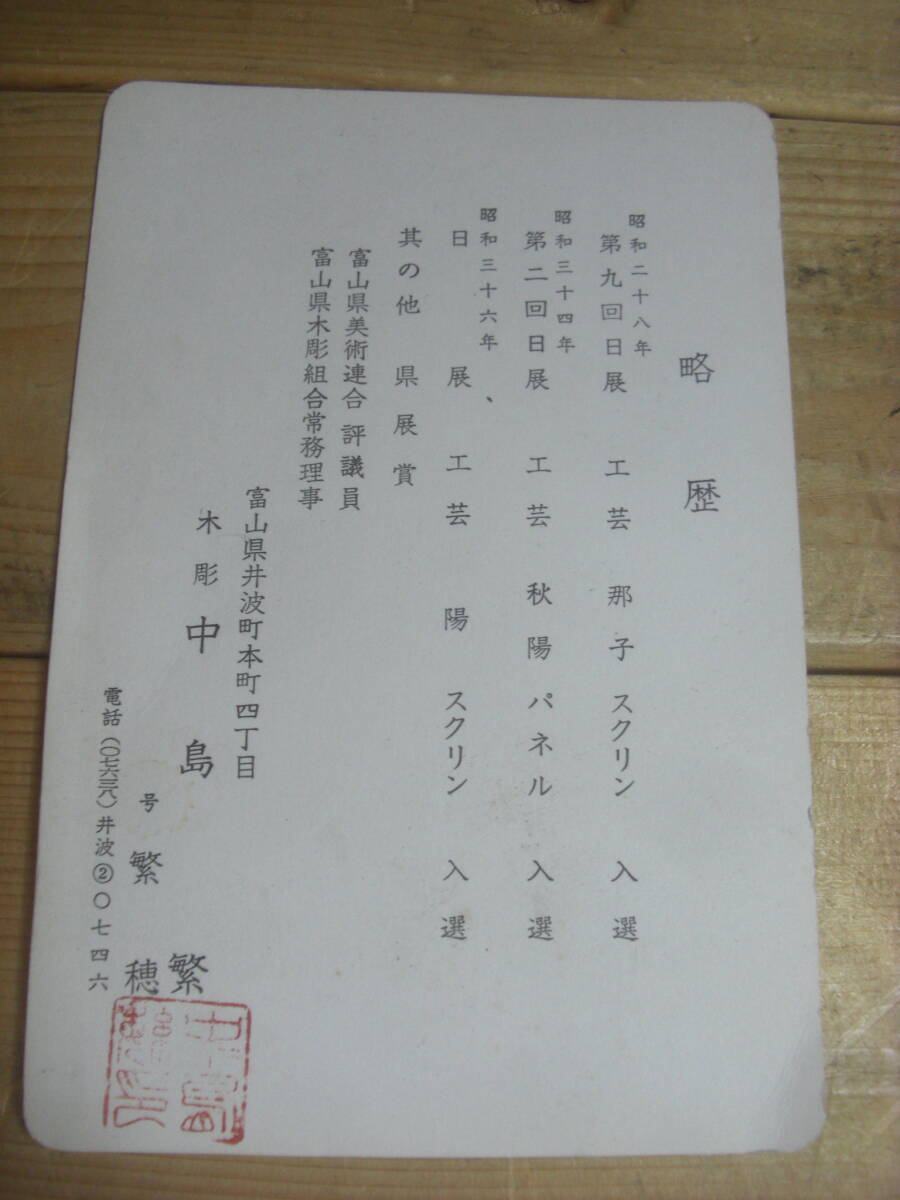 略歴
昭和二十八年
第九回日展 工芸 那子 スクリン 入選
昭和三十四年
第二回日展 工芸 秋陽 パネル 入選
昭和三十六年
日展、 工芸 陽 スクリン 入選
其の他 県展賞
富山県美術連合 評議員
富山県木彫組合常務理事
富山県井波町本町四丁目
木彫 中島 繁
号 繁穂
電話(〇七六三八)井波②〇七四六